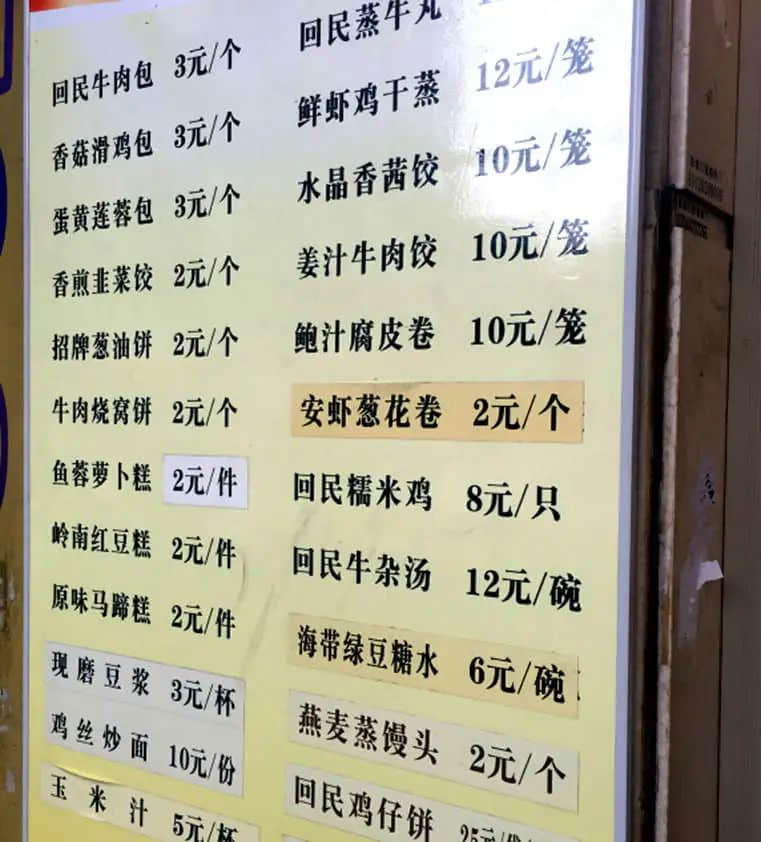 回民牛肉包 3元/个
香菇滑鸡包 3元/个
蛋黄莲蓉包 3元/个
香煎韭菜饺 2元/个
招牌葱油饼 2元/个
牛肉烧窝饼 2元/个
鱼蓉萝卜糕 2元/件
岭南红豆糕 2元/件
原味马蹄糕 2元/件
现磨豆浆 3元/杯
鸡丝炒面 10元/份
玉米汁 5元/杯
回民蒸牛丸
鲜虾鸡干蒸 12元/笼
水晶香茜饺 10元/笼
姜汁牛肉饺 10元/笼
鲍汁腐皮卷 10元/笼
安虾葱花卷 2元/个
回民糯米鸡 8元/只
回民牛杂汤 12元/碗
海带绿豆糖水 6元/碗
燕麦蒸馒头 2元/个
回民鸡仔饼 25元/